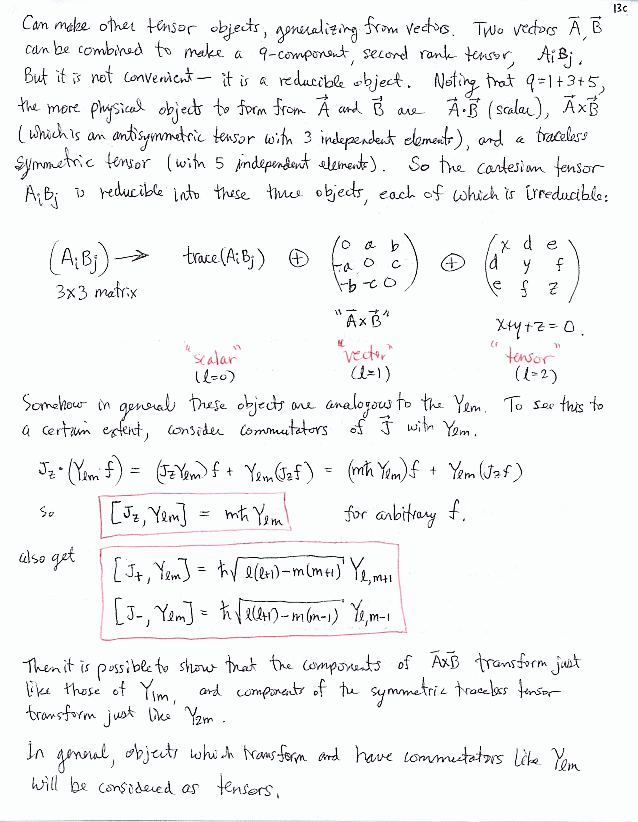 13c
Can make other tensor objects, generalizing from vectors. Two vectors A⃗, B⃗
can be combined to make a 9-component, second rank tensor, AᵢBⱼ.
But it is not convenient — it is a reducible object. Noting that 9=1+3+5,
the more physical objects to form from A⃗ and B⃗ are A⃗·B⃗ (scalar), A⃗×B⃗
(which is an antisymmetric tensor with 3 independent elements), and a traceless
symmetric tensor (with 5 independent elements). So the cartesian tensor
AᵢBⱼ is reducible into these three objects, each of which is irreducible:
(AᵢBⱼ) → trace(AᵢBⱼ) ⊕ (0 a b / -a 0 c / -b -c 0) ⊕ (x d e / d y f / e f z)
3x3 matrix
"A⃗×B⃗" x+y+z=0.
"scalar" "vector" "tensor"
(l=0) (l=1) (l=2)
Somehow in general these objects are analogous to the Yₗₘ. To see this to
a certain extent, consider commutators of J⃗ with Yₗₘ.
J_z·(Yₗₘ f) = (J_z Yₗₘ) f + Yₗₘ(J_z f) = (mħ Yₗₘ) f + Yₗₘ(J_z f)
So [J_z, Yₗₘ] = mħ Yₗₘ for arbitrary f.
also get [J₊, Yₗₘ] = ħ√(l(l+1)-m(m+1)) Y_{l,m+1}
[J₋, Yₗₘ] = ħ√(l(l+1)-m(m-1)) Y_{l,m-1}
Then it is possible to show that the components of A⃗×B⃗ transform just
like those of Y₁ₘ, and components of the symmetric traceless tensor
transform just like Y₂ₘ.
In general, objects which transform and have commutators like Yₗₘ
will be considered as tensors.